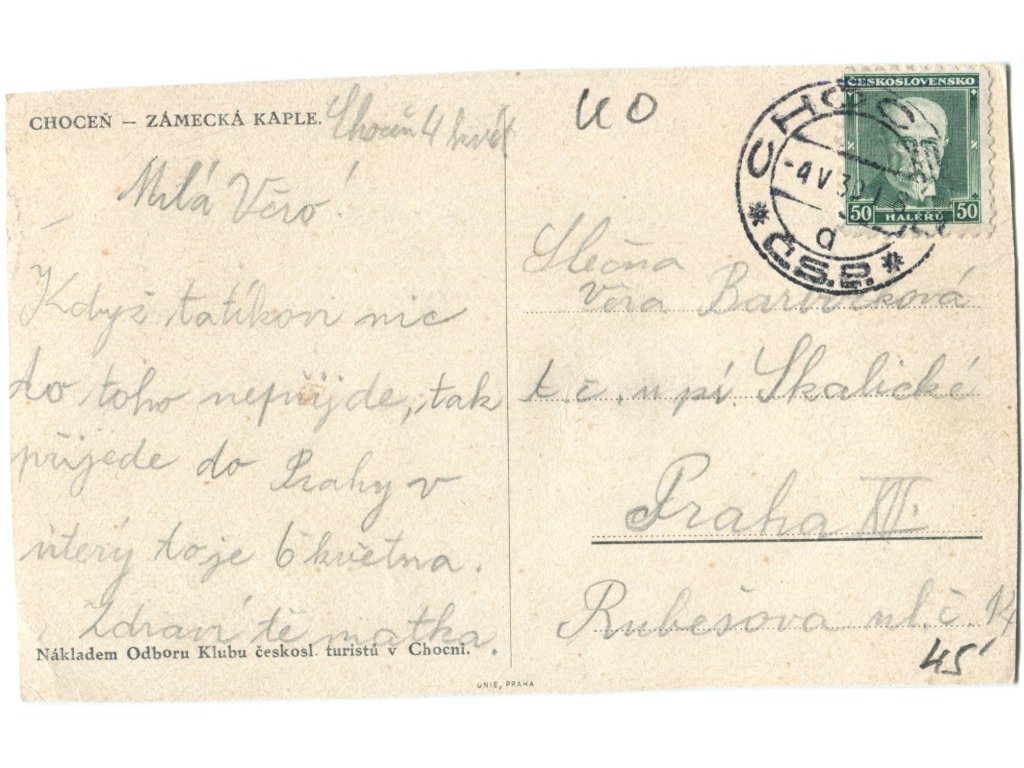 CHOCEŇ – ZÁMECKÁ KAPLE.
Choceň 4 květ
Milá Věro!
Když tatíkovi nic
do toho nepřijde, tak
přijede do Prahy v
úterý to je 6 května.
Zdraví tě matka.
Nákladem Odboru Klubu českosl. turistů v Chocni.
UNIE, PRAHA
UO
ČESKOSLOVENSKO
50 HALÉŘŮ 50
CHOCEŇ
-4.V.30
a
Č.S.P.
Slečna
Věra
t. č. u pí. Skalické
Praha XII.
Rubešova ul. č.
45